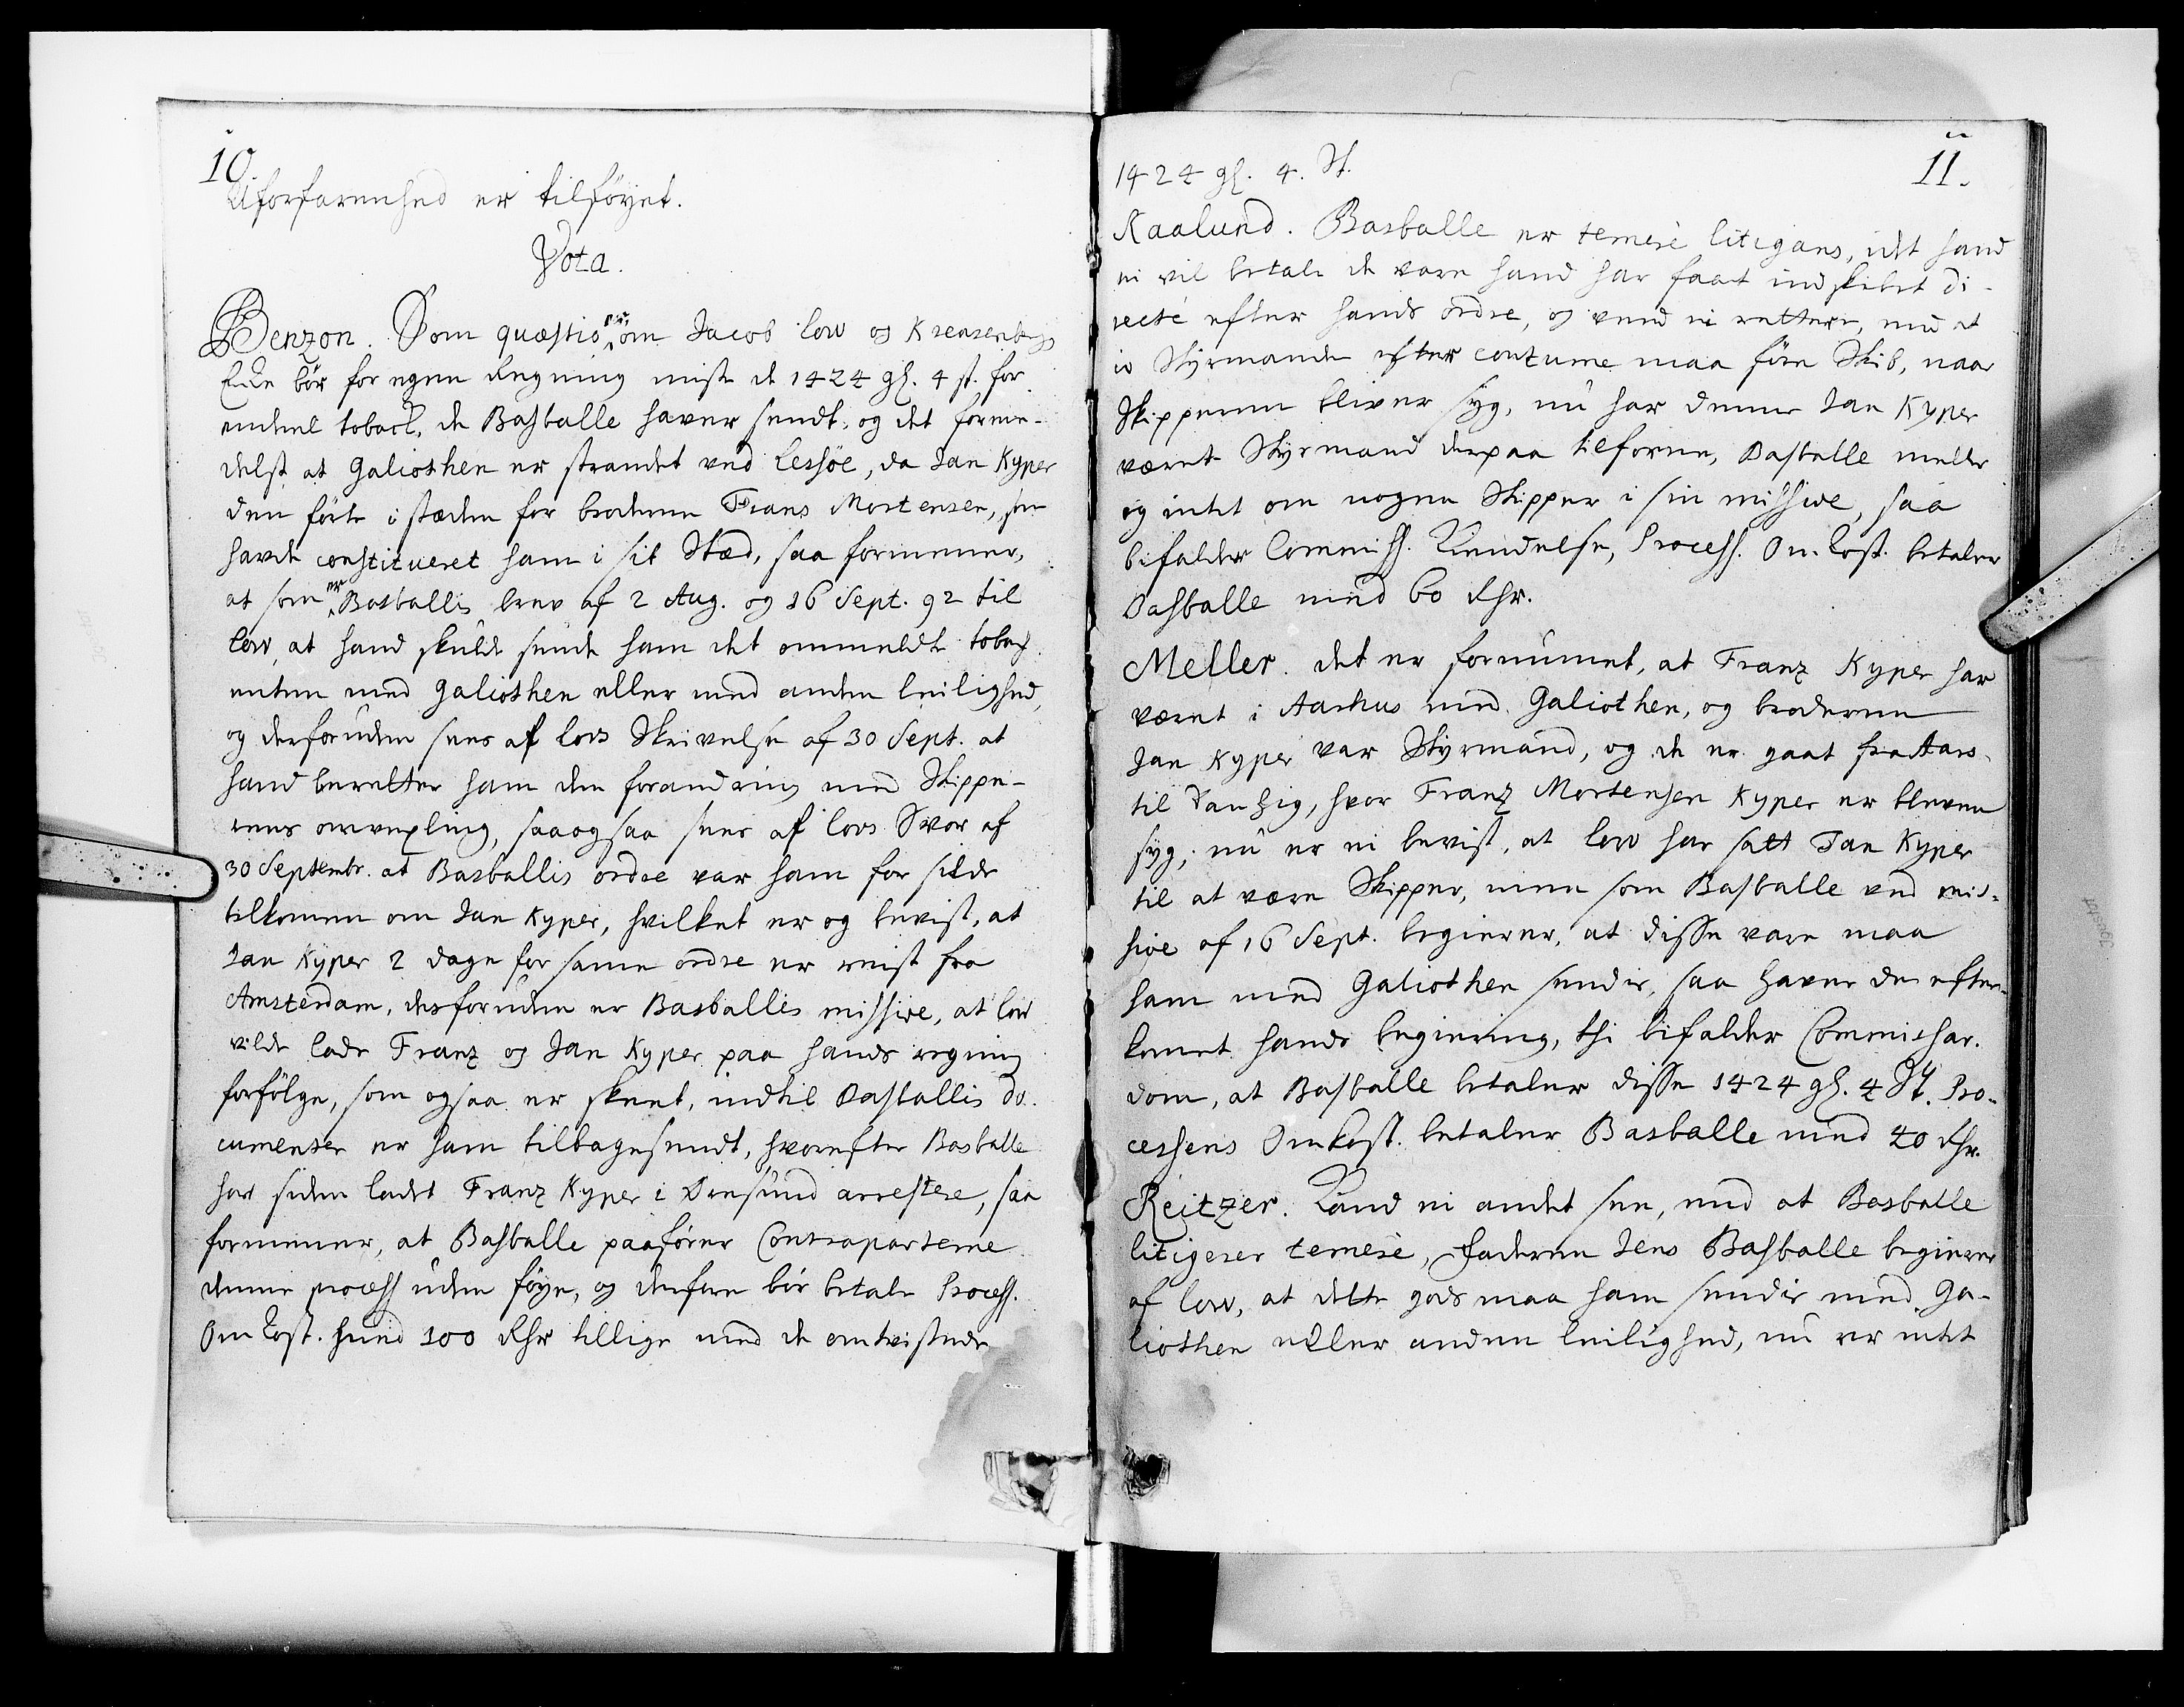 10
Uforfarenhed er tilföyet.
Vota.
Benzon. Som quæstio er, om Jacob Low og Krensenbergs
Encke bör for egen Regning miste de 1424 gl. 4 st. for
endeel toback, de Basballe haver sendt, og det forme-
delst at Galiothen er strandet ved Lessöe, da Jan Kyper
den förte i stæden for broderen Frans Mortensen, som
havde constitueret ham i sit Stæd, saa formener,
at som er Basballis brev af 2 Aug. og 16 Sept. 92 til
Low, at hand skulde sende ham det ommeldte toback
enten med Galiothen eller med anden leilighed,
og desforuden sees af Lows Skrivelse af 30 Sept. at
hand beretter ham den forandring med Skippe-
rens omvexling, saa og saa sees af Lows Svar af
30 Septembr. at Basballis ordre var ham for silde
tilkommen om Jan Kyper, hvilket er og bevist, at
Jan Kyper 2 dage for samme ordre er reist fra
Amsterdam, desforuden er Basballis missive, at Low
vilde lade Franz og Jan Kyper paa hands regning
forfölge, som ogsaa er skeet, indtil Basballis do-
cumenter er ham tilbagesendt, hvorefter Basballe
har siden ladet Franz Kyper i Öresund arrestere, saa
formener, at Basballe paaförer Contraparterne
denne process uden föye, og derfore bör betale Process.
Omkost. hend 100 Rdr tillige med de omtvistede
11.
1424 gl. 4. St.
Kaalund. Basballe er temerè litigans, idet hand
ei vil betale de vare hand har faaet indskibet di-
rectè efter hands ordre, og veed ei rettere, end at
io Styrmanden efter coutume maa före Skib, naar
Skipperen bliver syg, nu har denne Jan Kyper
været Styrmand derpaa tilforne, Basballe melder
og intet om nogen Skipper i sin missive, saa
bifalder Commiss. Kiendelse, Process. Omkost. betaler
Basballe med 60 Rdr.
Meller. det er fornummet, at Franz Kyper har
været i Aarhus med Galiothen, og broderen
Jan Kyper var Styrmand, og de er gaat fra Aars
til Danzig, hvor Franz Mortensen Kyper er bleven
syg, nu er ei bevist, at Low har satt Jan Kyper
til at være Skipper, men som Basballe ved mis-
sive af 16 Sept. begierer, at disse vare maa
ham med Galiothen sendes, saa haver de efter-
kommet hands begiering, thi bifalder Commissar.
dom, at Basballe betaler disse 1424 gl. 4 St. Pro-
cessens Omkost. betaler Basballe med 40 Rdr.
Reitzer. Kand ei andet see, end at Basballe
litigerer temerè, Faderen Jens Basballe begierer
af Low, at dette gods maa ham sendis med Ga-
liothen eller anden leilighed, nu er intet